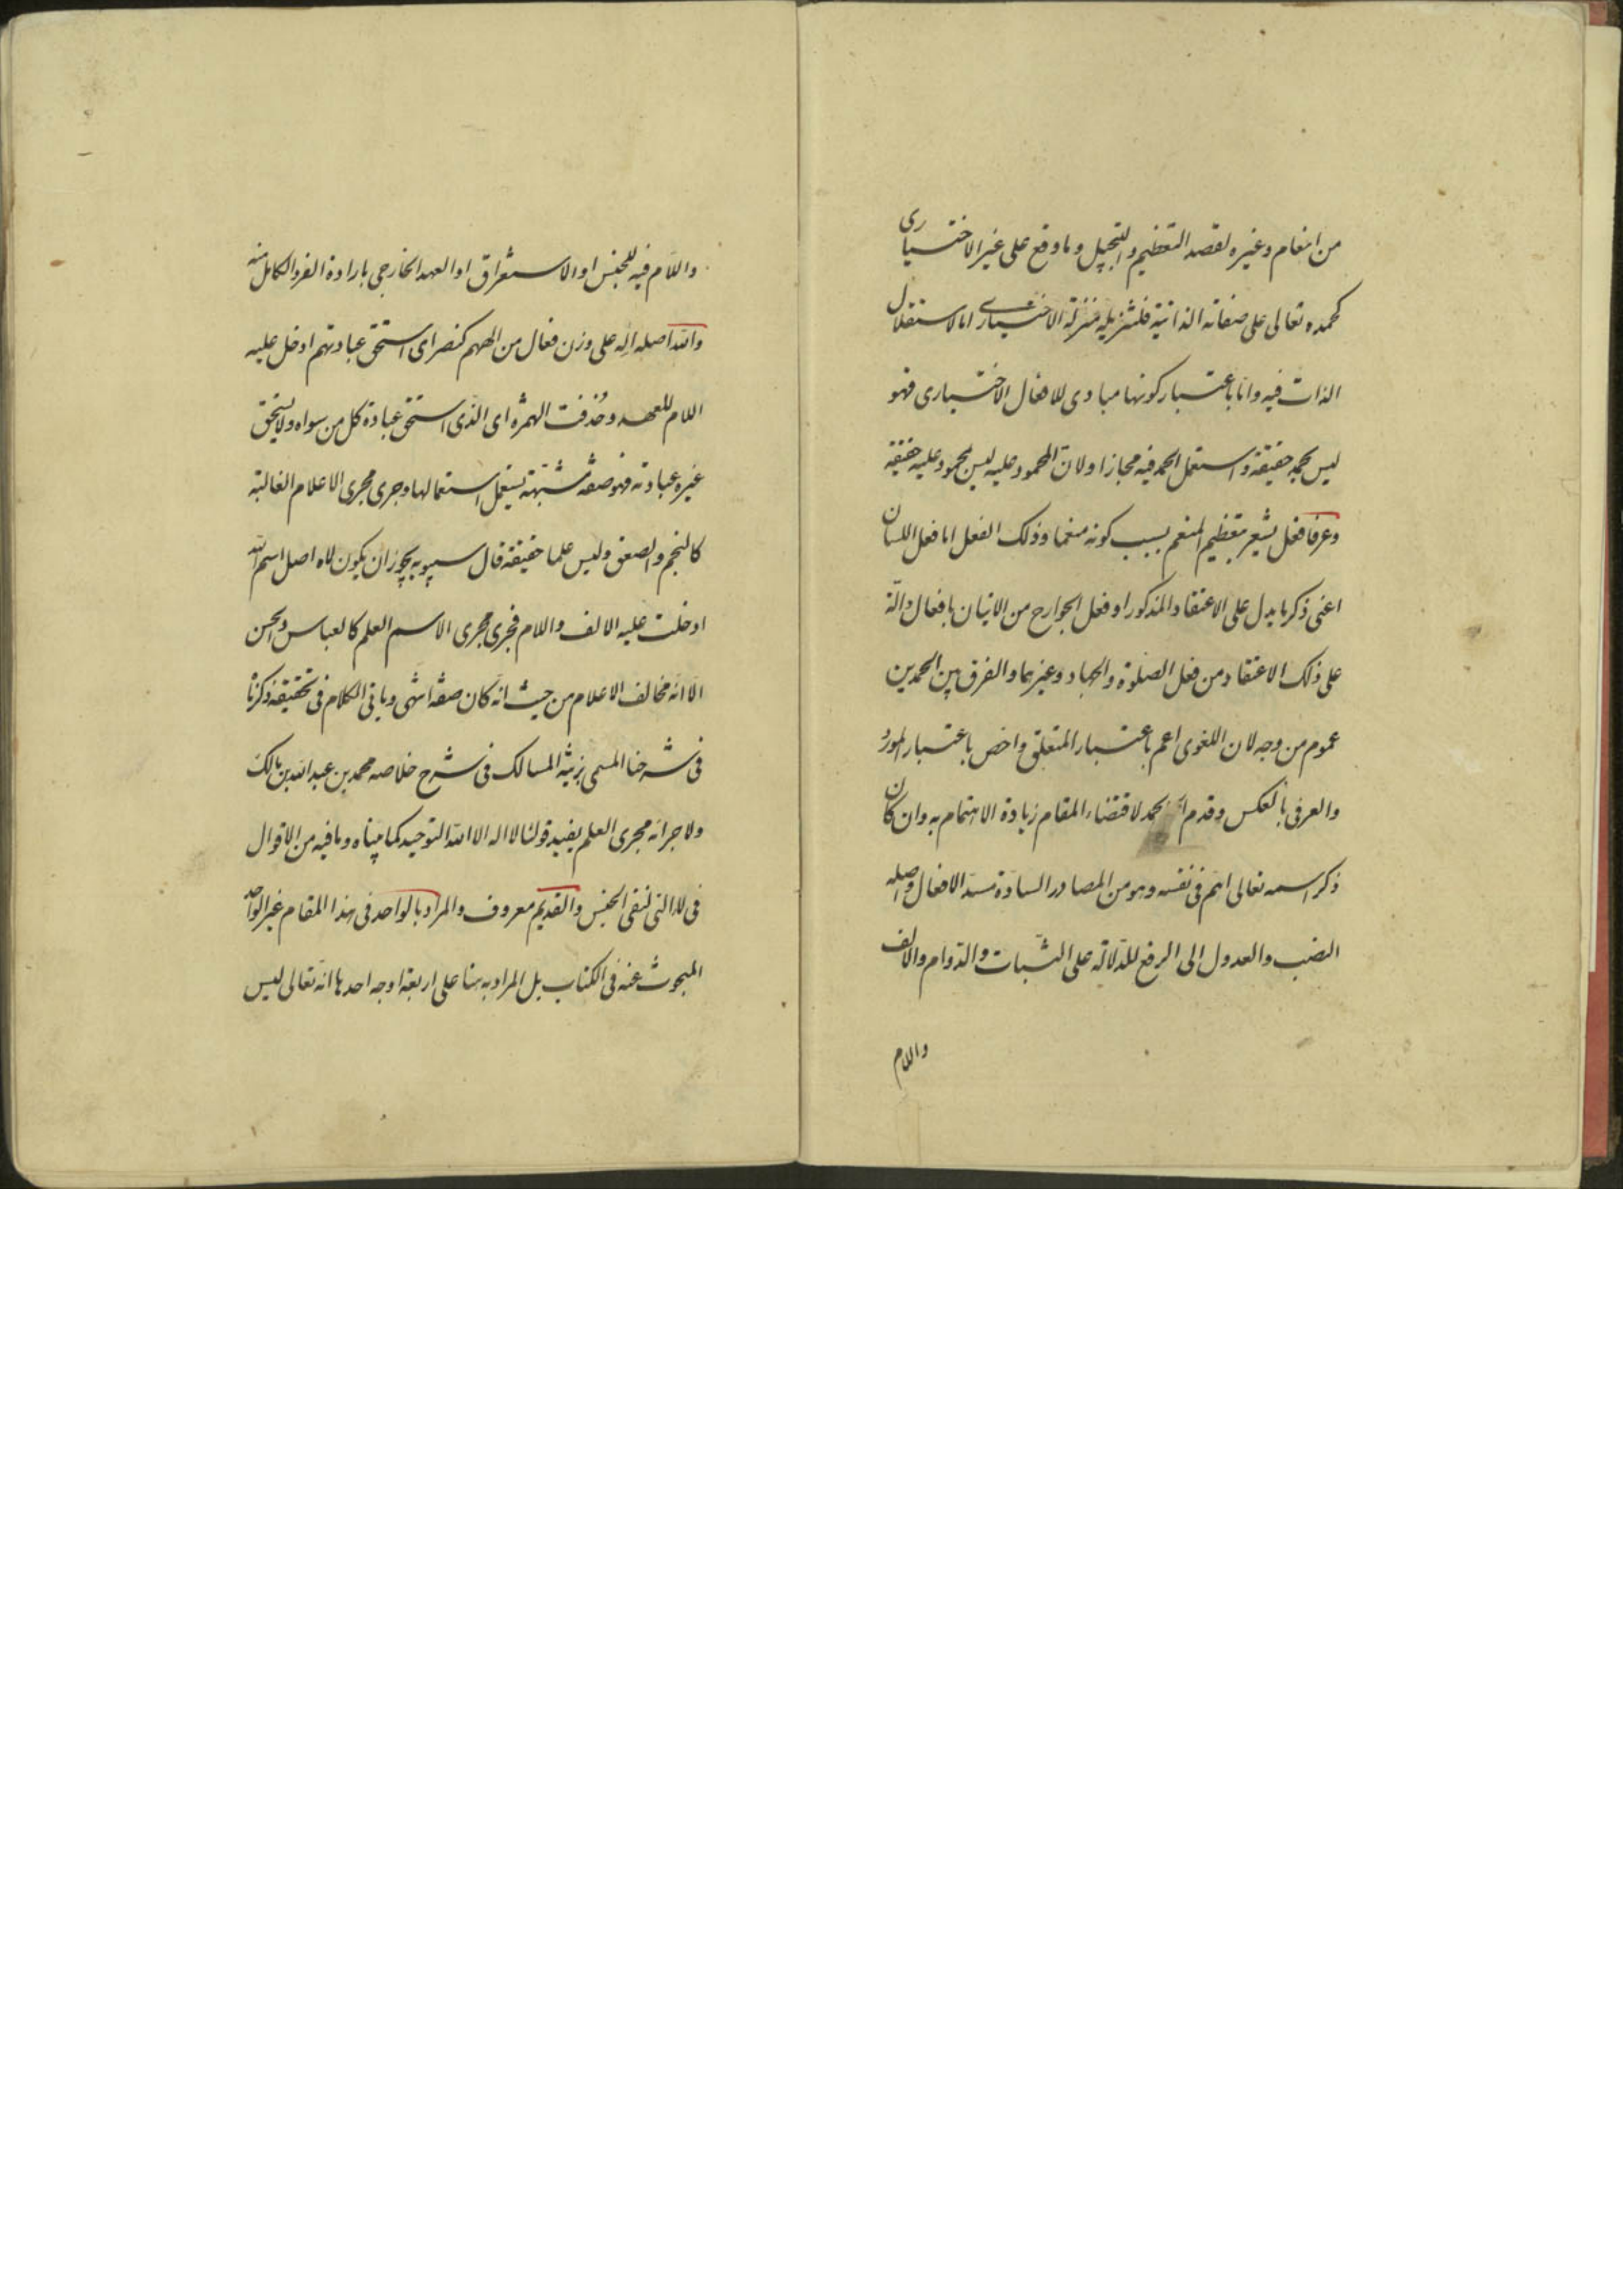 من انعام وغيره لقصد التعظيم والتبجيل وما وقع على غير الاختيارى
كحمده تعالى على صفاته الذاتية فلتنزيله منزلة الاختيارى اما لاستقلال
الذات فيه واما باعتبار كونها مبادى للافعال الاختيارى فهو
ليس بحمد حقيقة واستعمل الحمد فيه مجازا ولان المحمود عليه ليس بمحمود عليه حقيقة
وعرفا فعل يشعر بتعظيم المنعم بسبب كونه منعما وذلك الفعل اما فعل اللسان
اعنى ذكر ما يدل على الاعتقاد المذكور او فعل الجوارح من الاتيان بافعال دالة
على ذلك الاعتقاد من فعل الصلوة والجهاد وغيرهما والفرق بين الحمدين
عموم من وجه لان اللغوى اعم باعتبار المتعلق واخص باعتبار المورد
والعرفى بالعكس وقدم الحمد لاقتضاء المقام زيادة الاهتمام به وان كان
ذكر اسمه تعالى اهم فى نفسه وهو من المصادر السادة مسد الافعال واصله
النصب والعدول الى الرفع للدلالة على الثبات والدوام والالف
واللام
واللام فيه للجنس او الاستغراق او العهد الخارجى بارادة الفرد الكامل منه
والله اصله اله على وزن فعال من الههم كنصر اى استحق عبادتهم ادخل عليه
اللام للعهد وحذفت الهمزه اى الذى استحق عبادة كل من سواه ولا يستحق
غيره عبادته فهو صفة مشبهة تستعمل استعمالها وجرى مجرى الاعلام الغالبة
كالنجم والصعق وليس علما حقيقة قال سيبويه يجوز ان يكون لاه اصل اسم الله
ادخلت عليه الالف واللام فجرى مجرى الاسم العلم كالعباس والحسن
الا انه مخالف الاعلام من حيث انه كان صفة انتهى وباقى الكلام فى تحقيقه ذكرناه
فى شرحنا المسمى بزينة المسالك فى شرح خلاصه محمد بن عبد الله بن مالك
ولاجرائه مجرى العلم يفيد قولنا لا اله الا الله التوحيد كما بيناه وما فيه من الاقوال
فى لا التى لنفى الجنس والقديم معروف والمراد بالواحد فى هذا المقام غير الواحد
المبحوث عنه فى الكتاب بل المراد به هنا على اربعة اوجه احدها انه تعالى ليس